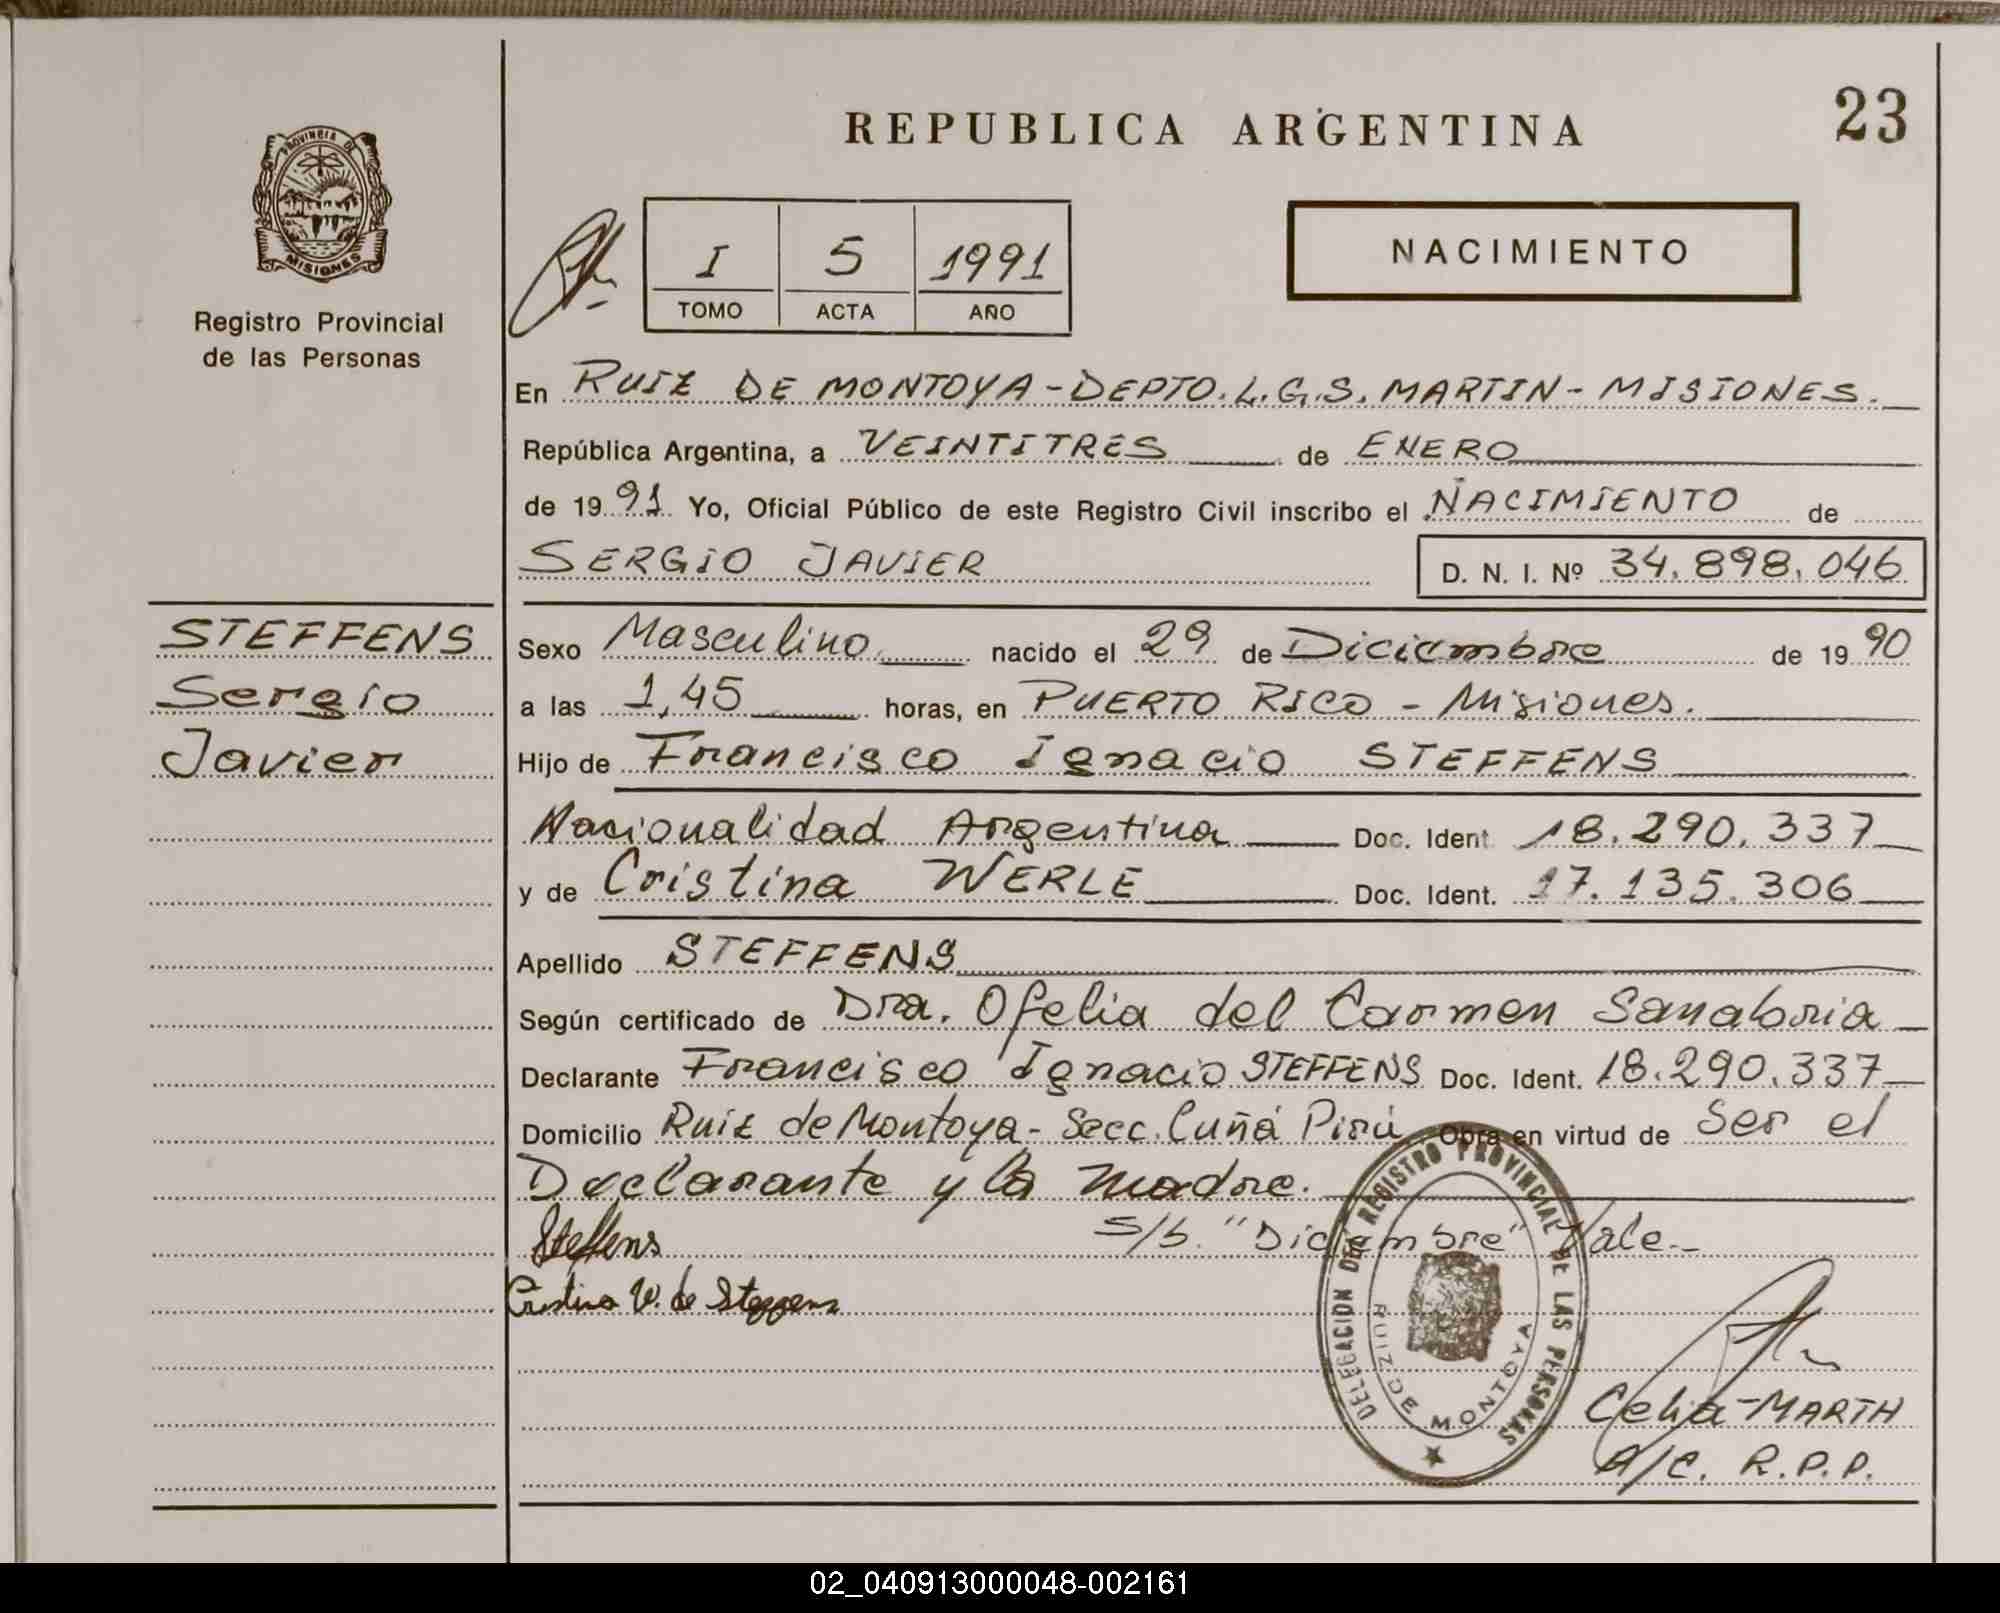 23
REPUBLICA ARGENTINA
PROVINCIA DE
MISIONES
Registro Provincial
de las Personas
I 5 1991
TOMO ACTA AÑO
NACIMIENTO
En RUIZ DE MONTOYA - DEPTO. L.G.S. MARTIN - MISIONES.
República Argentina, a VEINTITRES de ENERO
de 1991 Yo, Oficial Público de este Registro Civil inscribo el NACIMIENTO de
SERGIO JAVIER D. N. I. Nº 34.898.046
STEFFENS
Sergio
Javier
Sexo Masculino nacido el 29 de Diciembre de 1990
a las 1,45 horas, en PUERTO RICO - Misiones.
Hijo de Francisco Ignacio STEFFENS
Nacionalidad Argentina Doc. Ident 18.290.337
y de Cristina WERLE Doc. Ident. 17.135.306
Apellido STEFFENS
Según certificado de Dra. Ofelia del Carmen Sanabria
Declarante Francisco Ignacio STEFFENS Doc. Ident. 18.290.337
Domicilio Ruiz de Montoya - Secc. Cuñá Pirú Obra en virtud de Ser el
Declarante y la madre.
Steffens s/b. "Diciembre" Vale.-
Cristina W. de Steffens
DELEGACION DEL REGISTRO PROVINCIAL DE LAS PERSONAS
RUIZ DE MONTOYA
Celia MARTH
A/C. R.P.P.
02_040913000048-002161